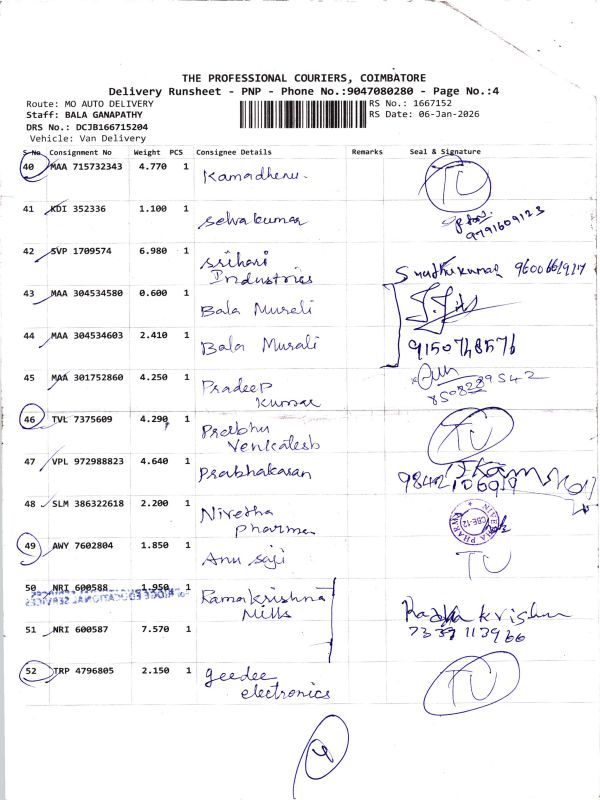 THE PROFESSIONAL COURIERS, COIMBATORE
Delivery Runsheet - PNP - Phone No.:9047080280 - Page No.:4
Route: MO AUTO DELIVERY
RS No.: 1667152
Staff: BALA GANAPATHY
RS Date: 06-Jan-2026
DRS No.: DCJB166715204
Vehicle: Van Delivery
S No. Consignment No Weight PCS Consignee Details Remarks Seal & Signature
40 MAA 715732343 4.770 1 Kamadhenu. TU
41 KDI 352336 1.100 1 Selvakumar
9791609123
42 SVP 1709574 6.980 1 Srihari
Industries
43 MAA 304534580 0.600 1 Bala Murali
44 MAA 304534603 2.410 1 Bala Murali 9150748576
45 MAA 301752860 4.250 1 Pradeep
Kumar
8508289542
46 TVL 7375609 4.290 1 Prabhu
Venkatesh TU
47 VPL 972988823 4.640 1 Prabhakaran
48 SLM 386322618 2.200 1 Nivetha
Pharma CBE-12
49 AWY 7602804 1.850 1 Anu Saji TU
50 NRI 600588 1.950 1 Ramakrishna
Mills
Radha krishn
51 NRI 600587 7.570 1 7339113966
52 TRP 4796805 2.150 1 geedee
electronics TU
4